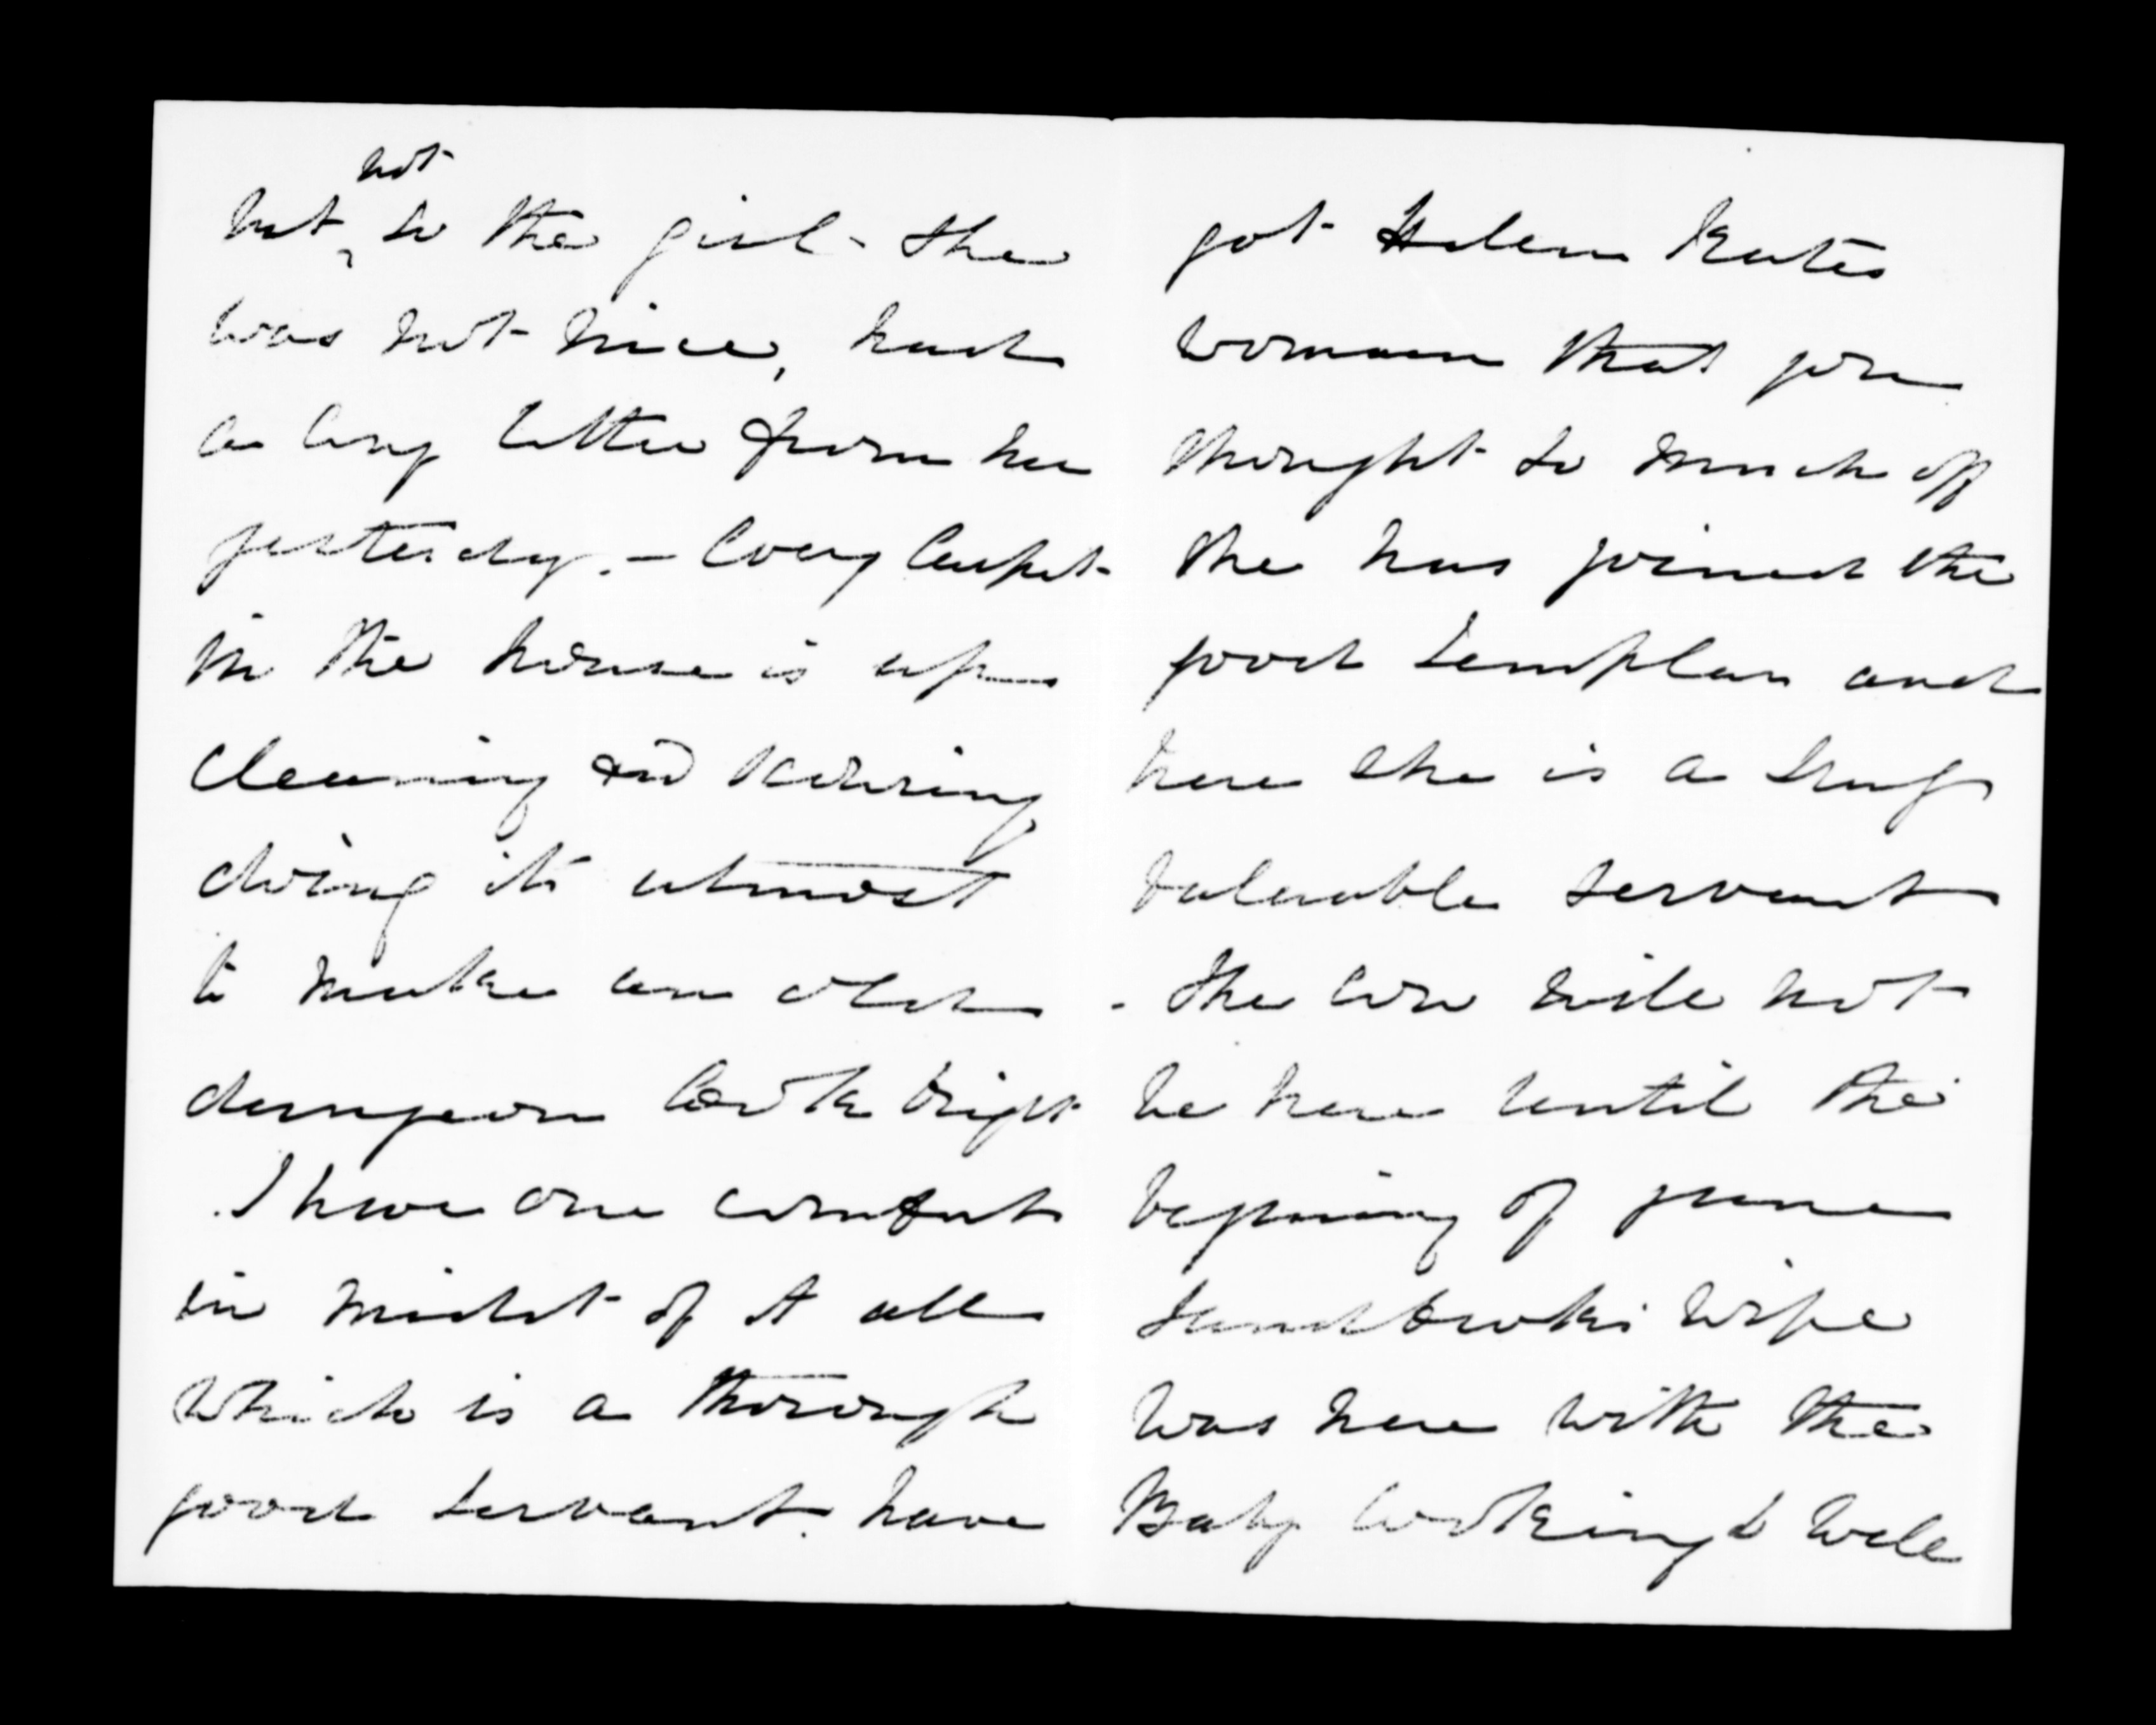 not
but so the girl - she
was not nice, had
a long letter from her
yesterday. - Every Carpet
in the house is up
cleaning and scouring
doing its utmost
to make an old
dungeon look bright
I have one comfort
in midst of it all
which is a thorough
good servant. have
got Helen Kates
woman that you
thought so much of
She has joined the
good templars and
here she is a truly
valuable servant
- The cow will not
be here until the
begining of june
wife
was here with the
Baby looking so well